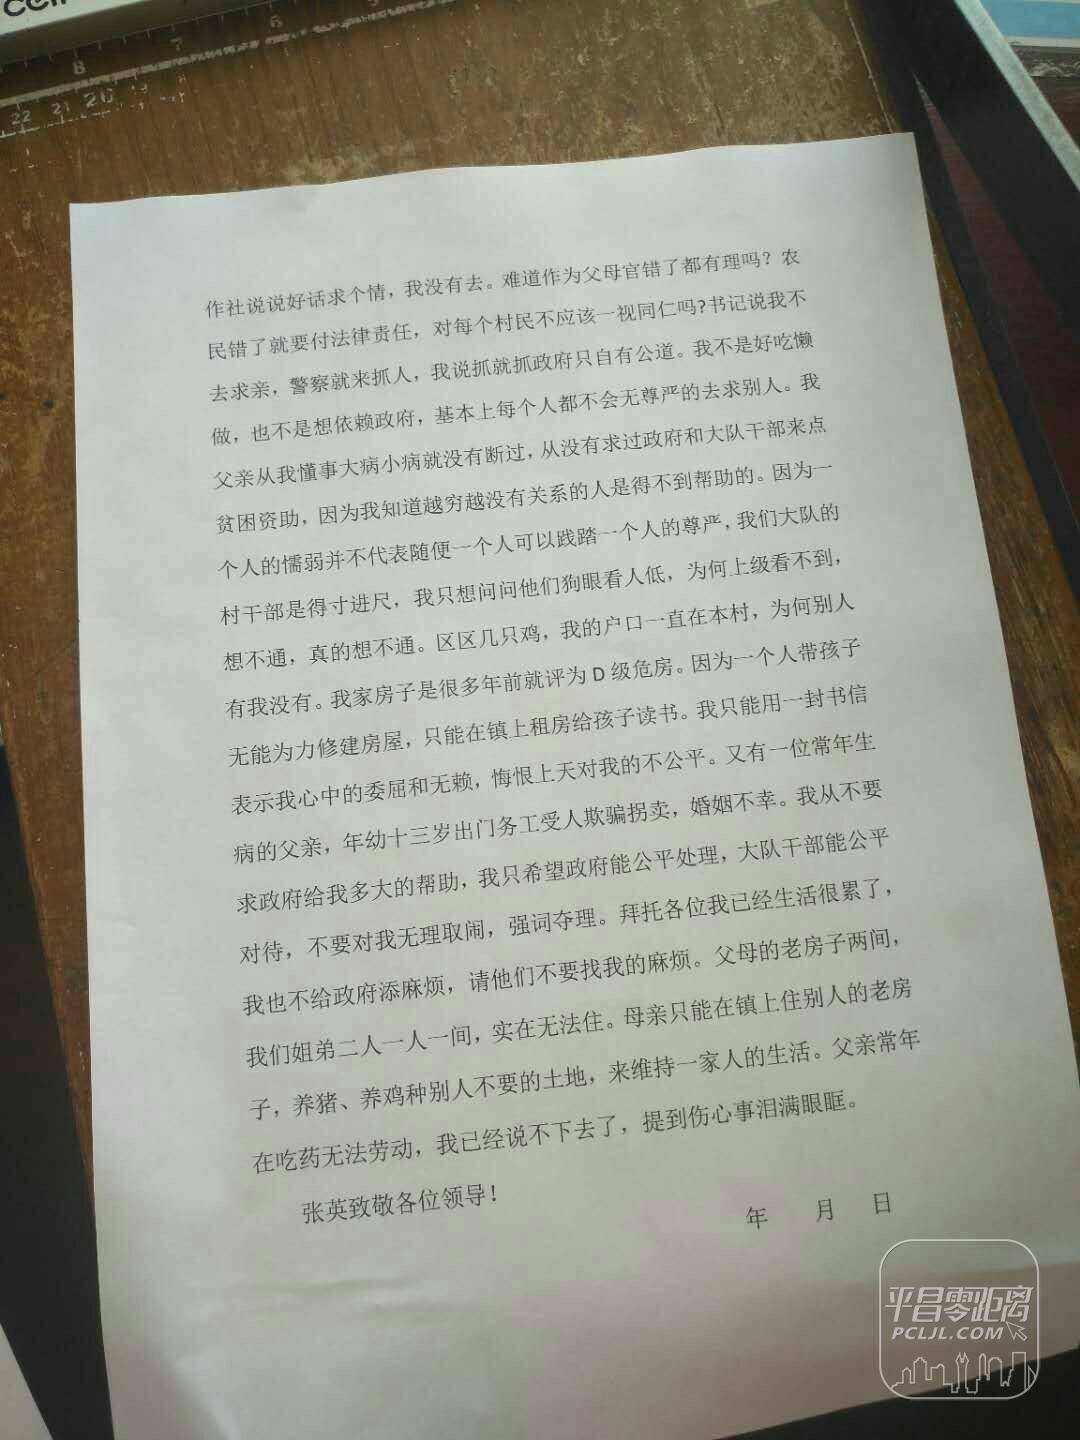 8 7 6
22 21 20
作社说说好话求个情，我没有去。难道作为父母官错了都有理吗？农
民错了就要付法律责任，对每个村民不应该一视同仁吗?书记说我不
去求亲，警察就来抓人，我说抓就抓政府只自有公道。我不是好吃懒
做，也不是想依赖政府，基本上每个人都不会无尊严的去求别人。我
父亲从我懂事大病小病就没有断过，从没有求过政府和大队干部来点
贫困资助，因为我知道越穷越没有关系的人是得不到帮助的。因为一
个人的懦弱并不代表随便一个人可以践踏一个人的尊严，我们大队的
村干部是得寸进尺，我只想问问他们狗眼看人低，为何上级看不到，
想不通，真的想不通。区区几只鸡，我的户口一直在本村，为何别人
有我没有。我家房子是很多年前就评为D级危房。因为一个人带孩子
无能为力修建房屋，只能在镇上租房给孩子读书。我只能用一封书信
表示我心中的委屈和无赖，悔恨上天对我的不公平。又有一位常年生
病的父亲，年幼十三岁出门务工受人欺骗拐卖，婚姻不幸。我从不要
求政府给我多大的帮助，我只希望政府能公平处理，大队干部能公平
对待，不要对我无理取闹，强词夺理。拜托各位我已经生活很累了，
我也不给政府添麻烦，请他们不要找我的麻烦。父母的老房子两间，
我们姐弟二人一人一间，实在无法住。母亲只能在镇上住别人的老房
子，养猪、养鸡种别人不要的土地，来维持一家人的生活。父亲常年
在吃药无法劳动，我已经说不下去了，提到伤心事泪满眼眶。
张英致敬各位领导！
年 月 日
平昌零距离
PCLJL.COM